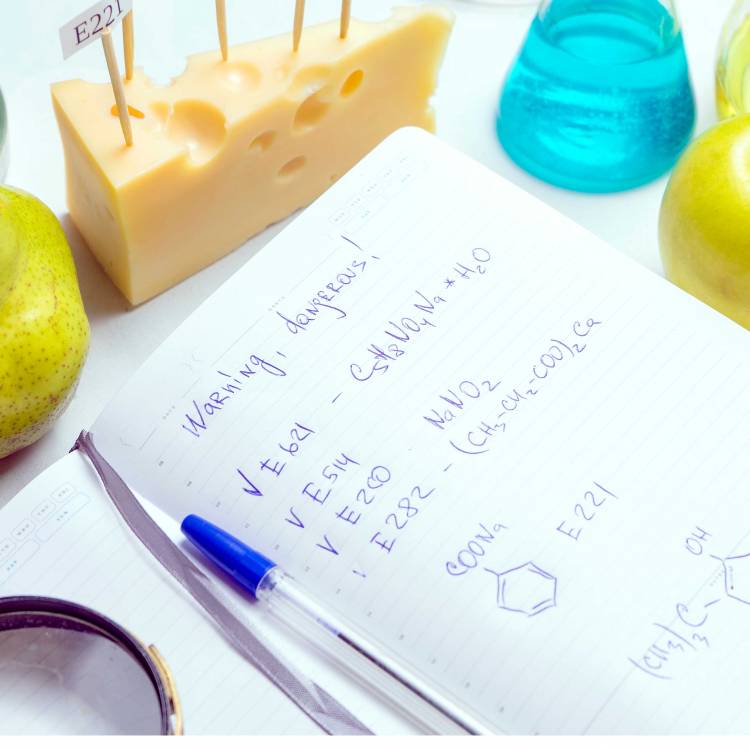 E221
Warning, dangerous!
V E621 - C₅H₈NO₄Na*H₂O
V E514
V E200 NaNO₂
E282 - (CH₃-CH₂-COO)₂Ca
COONa
E221
OH
(CH₃)₃C-